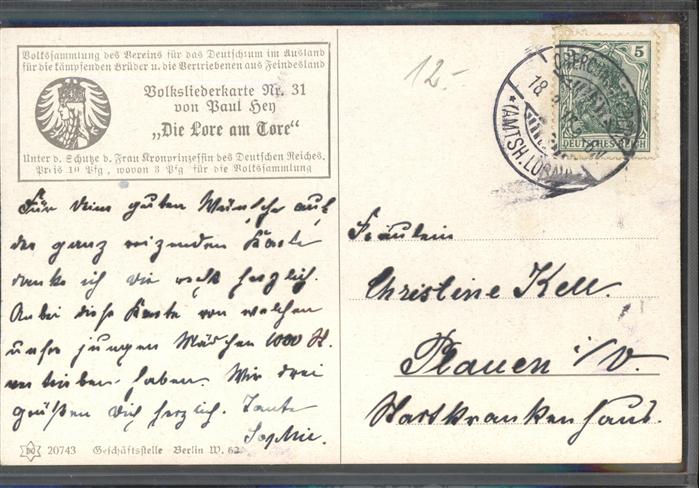 Volkssammlung des Vereins für das Deutschtum im Ausland
für die kämpfenden Brüder u. die Vertriebenen aus Feindesland
Volksliederkarte Nr. 31
von Paul Hey
„Die Lore am Tore“
Unter d. Schutze d. Frau Kronprinzessin des Deutschen Reiches.
Preis 10 Pfg, wovon 3 Pfg für die Volkssammlung
Für Deine guten Wünsche auf
der ganz reizenden Karte
danke ich Dir recht herzlich.
Anbei diese Karte von welchen
unsre jungen Mädchen 1000 St.
vertrieben haben. Wir drei
grüßen Dich herzlich. Tante
Sophie.
20743 Geschäftsstelle Berlin W. 62
12.-
5
DEUTSCHES REICH
18.
(AMTSH. LÖBAU)
Fräulein
Christine Kell.
Plauen i/V.
Stadtkrankenhaus.